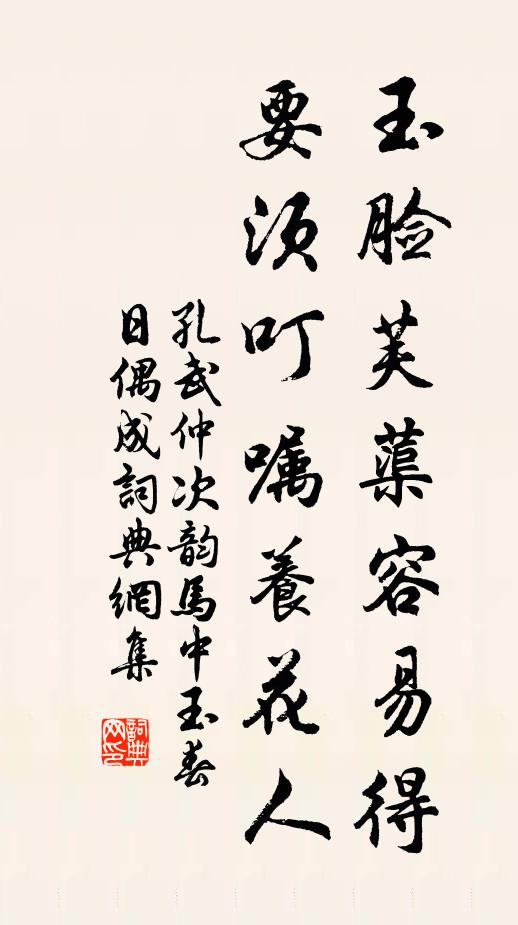 玉脸芙蕖容易得
要须叮嘱養花人
孔武仲次韵馬中玉春
日偶成詞典網集
詞典
网印